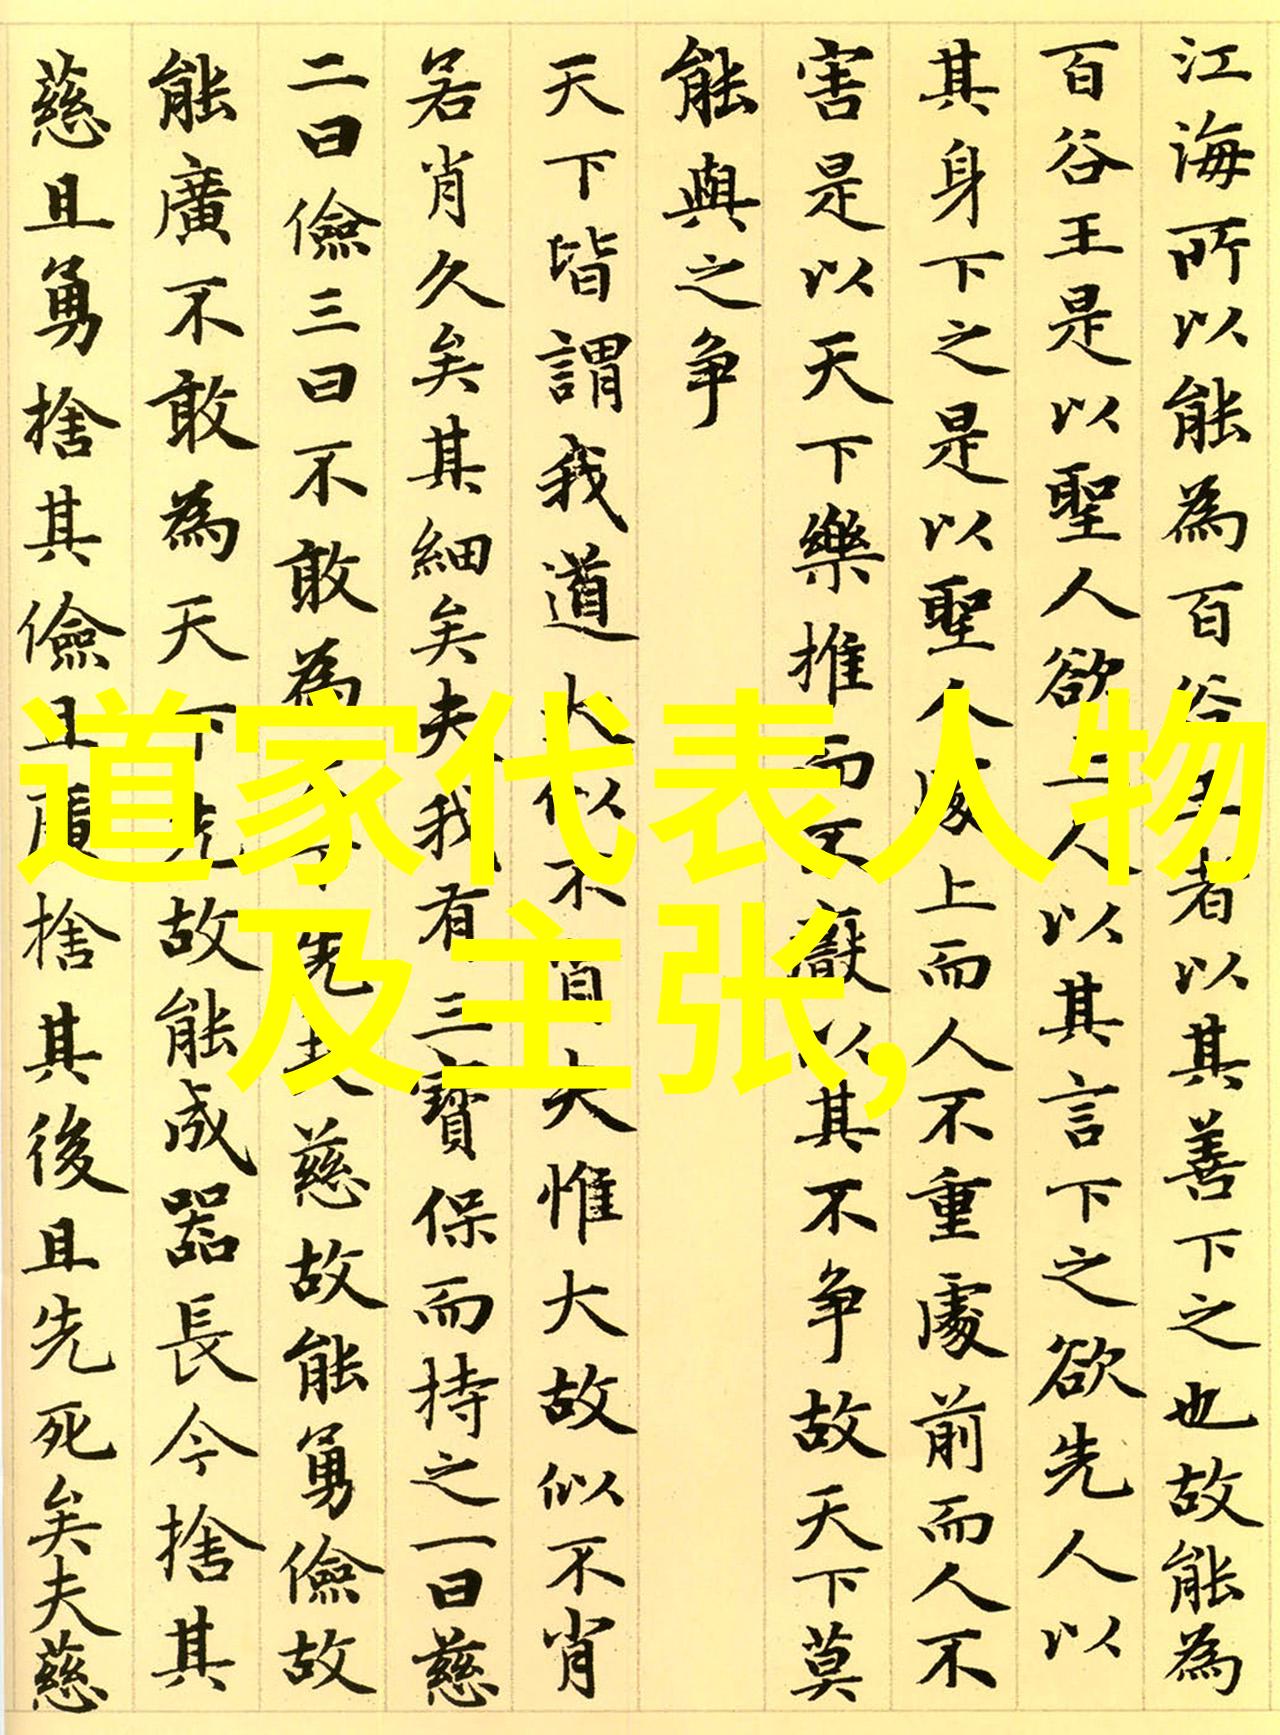 江海所以能為百谷王者以其善下之也故能為
百谷王是以聖人欲上人以其言下之欲先人以
其身下之是以聖人處上而人不重處前而人不
害是以天下樂推而不厭以其不争故天下莫
能與之争
天下皆謂我道大似不肖大惟大故似不肖
若肖久矣其細矣夫我有三寶保而持之一曰慈
二曰儉三曰不敢為天下先夫慈故能勇儉故
能廣不敢為天下先故能成器長今捨其
慈且勇捨其儉且廣捨其後且先死矣夫慈
道家代表人物
及主张,